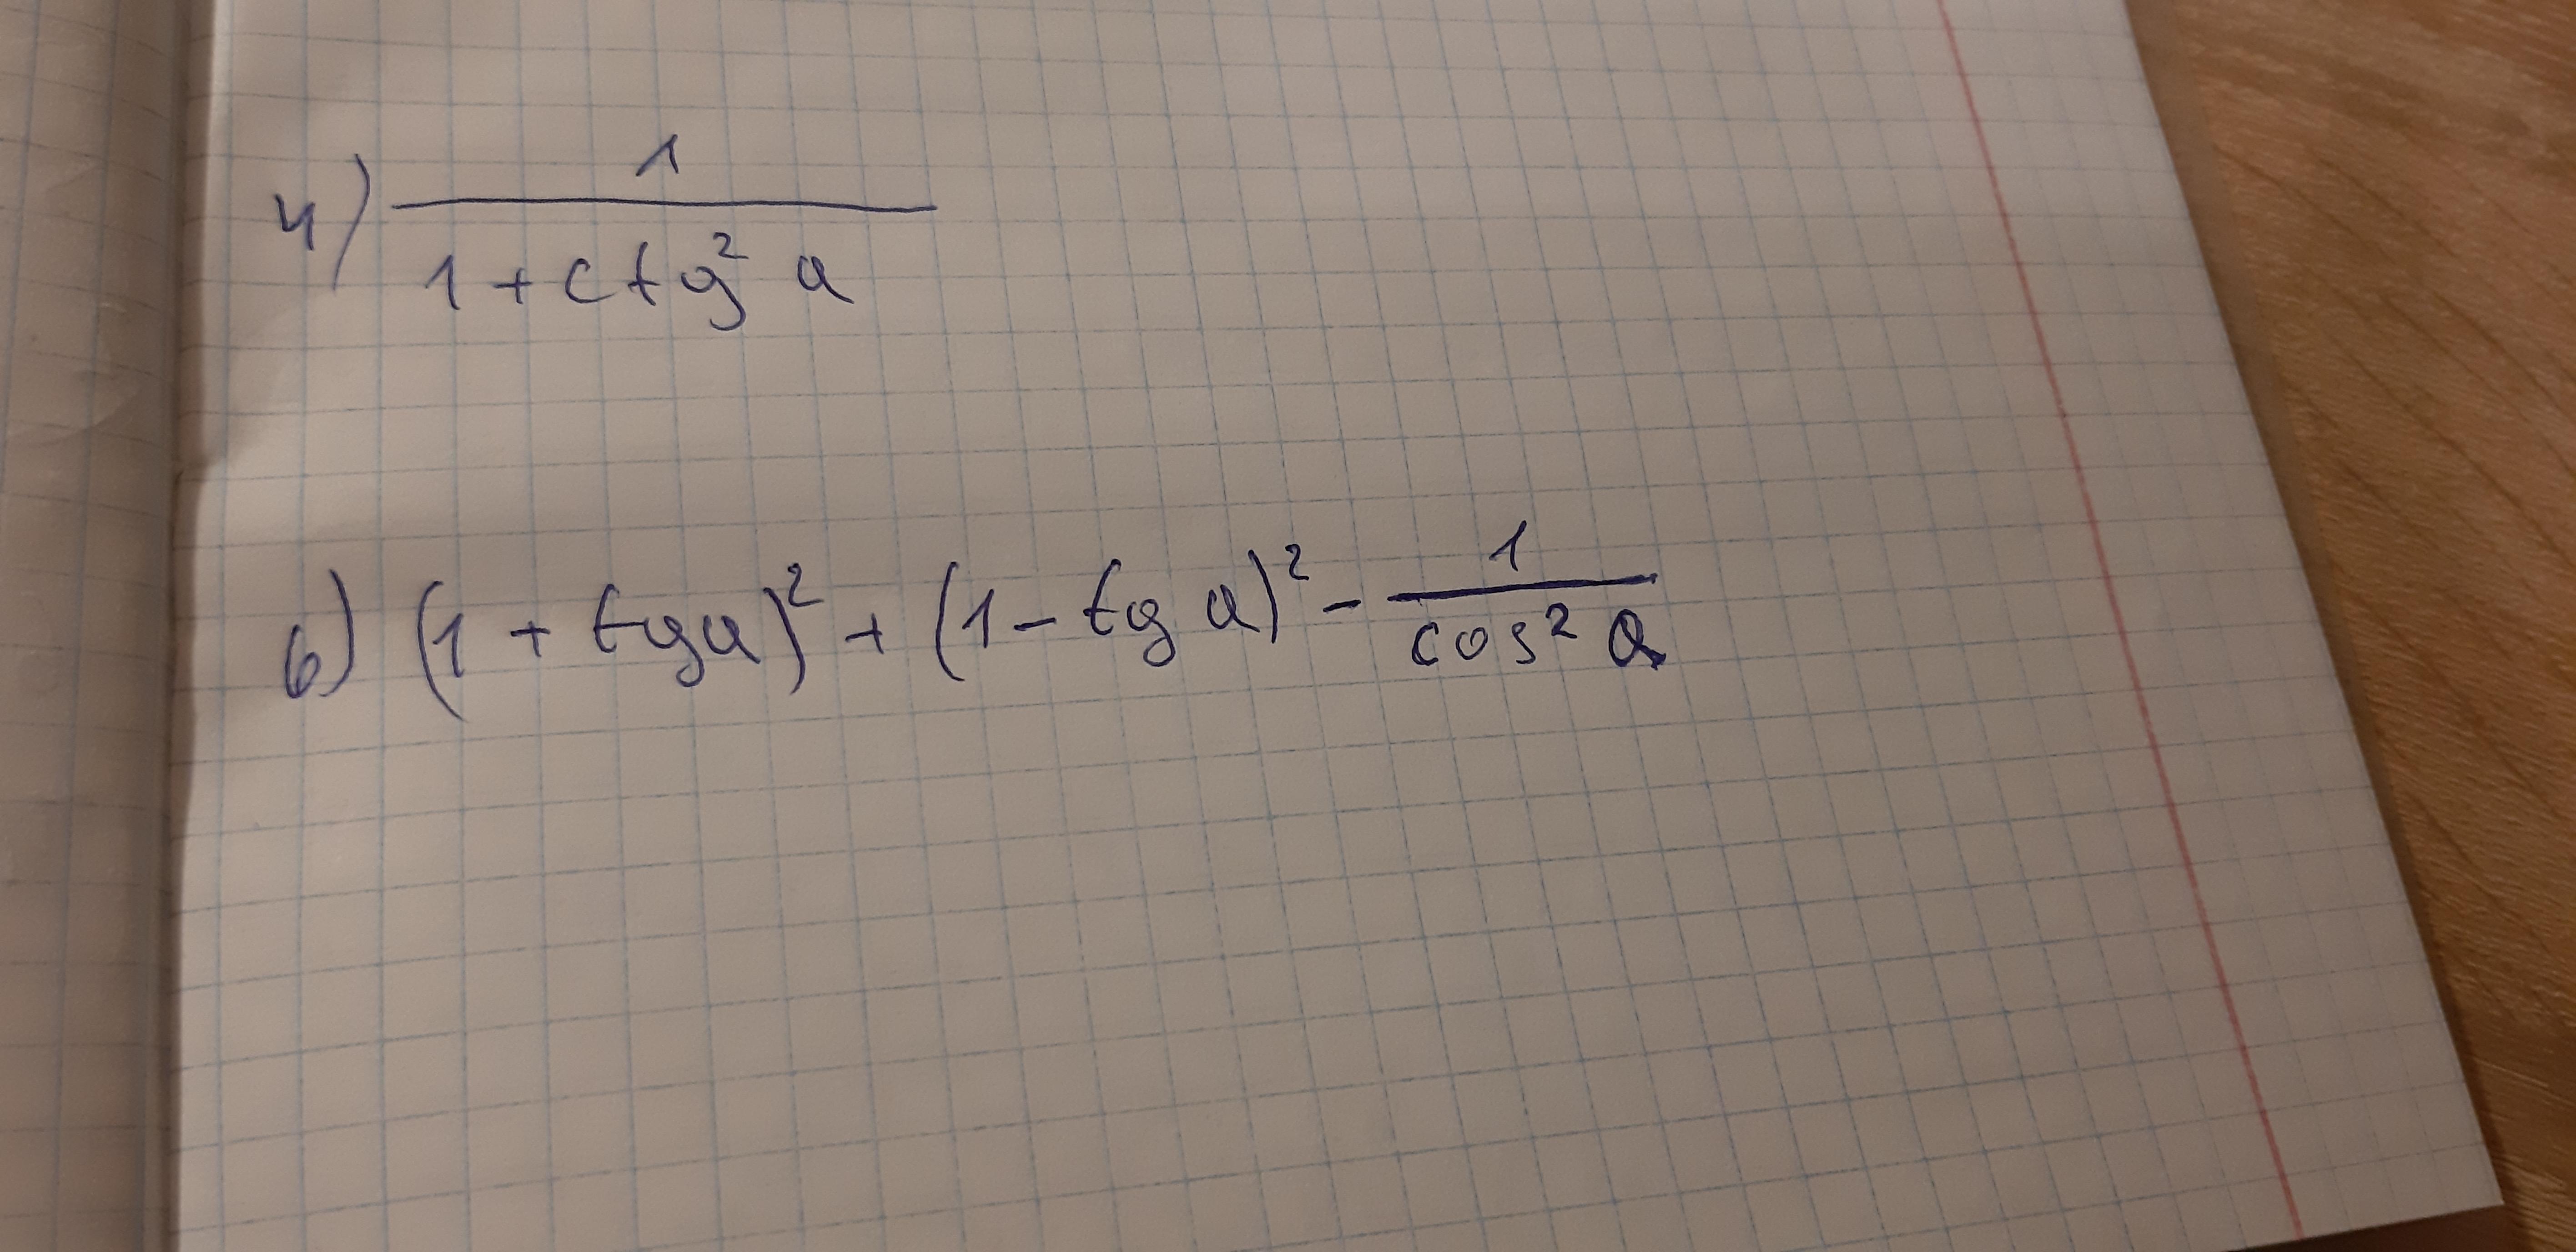 4) 1 / (1 + ctg² a)
6) (1 + tg a)² + (1 - tg a)² - 1 / cos² a